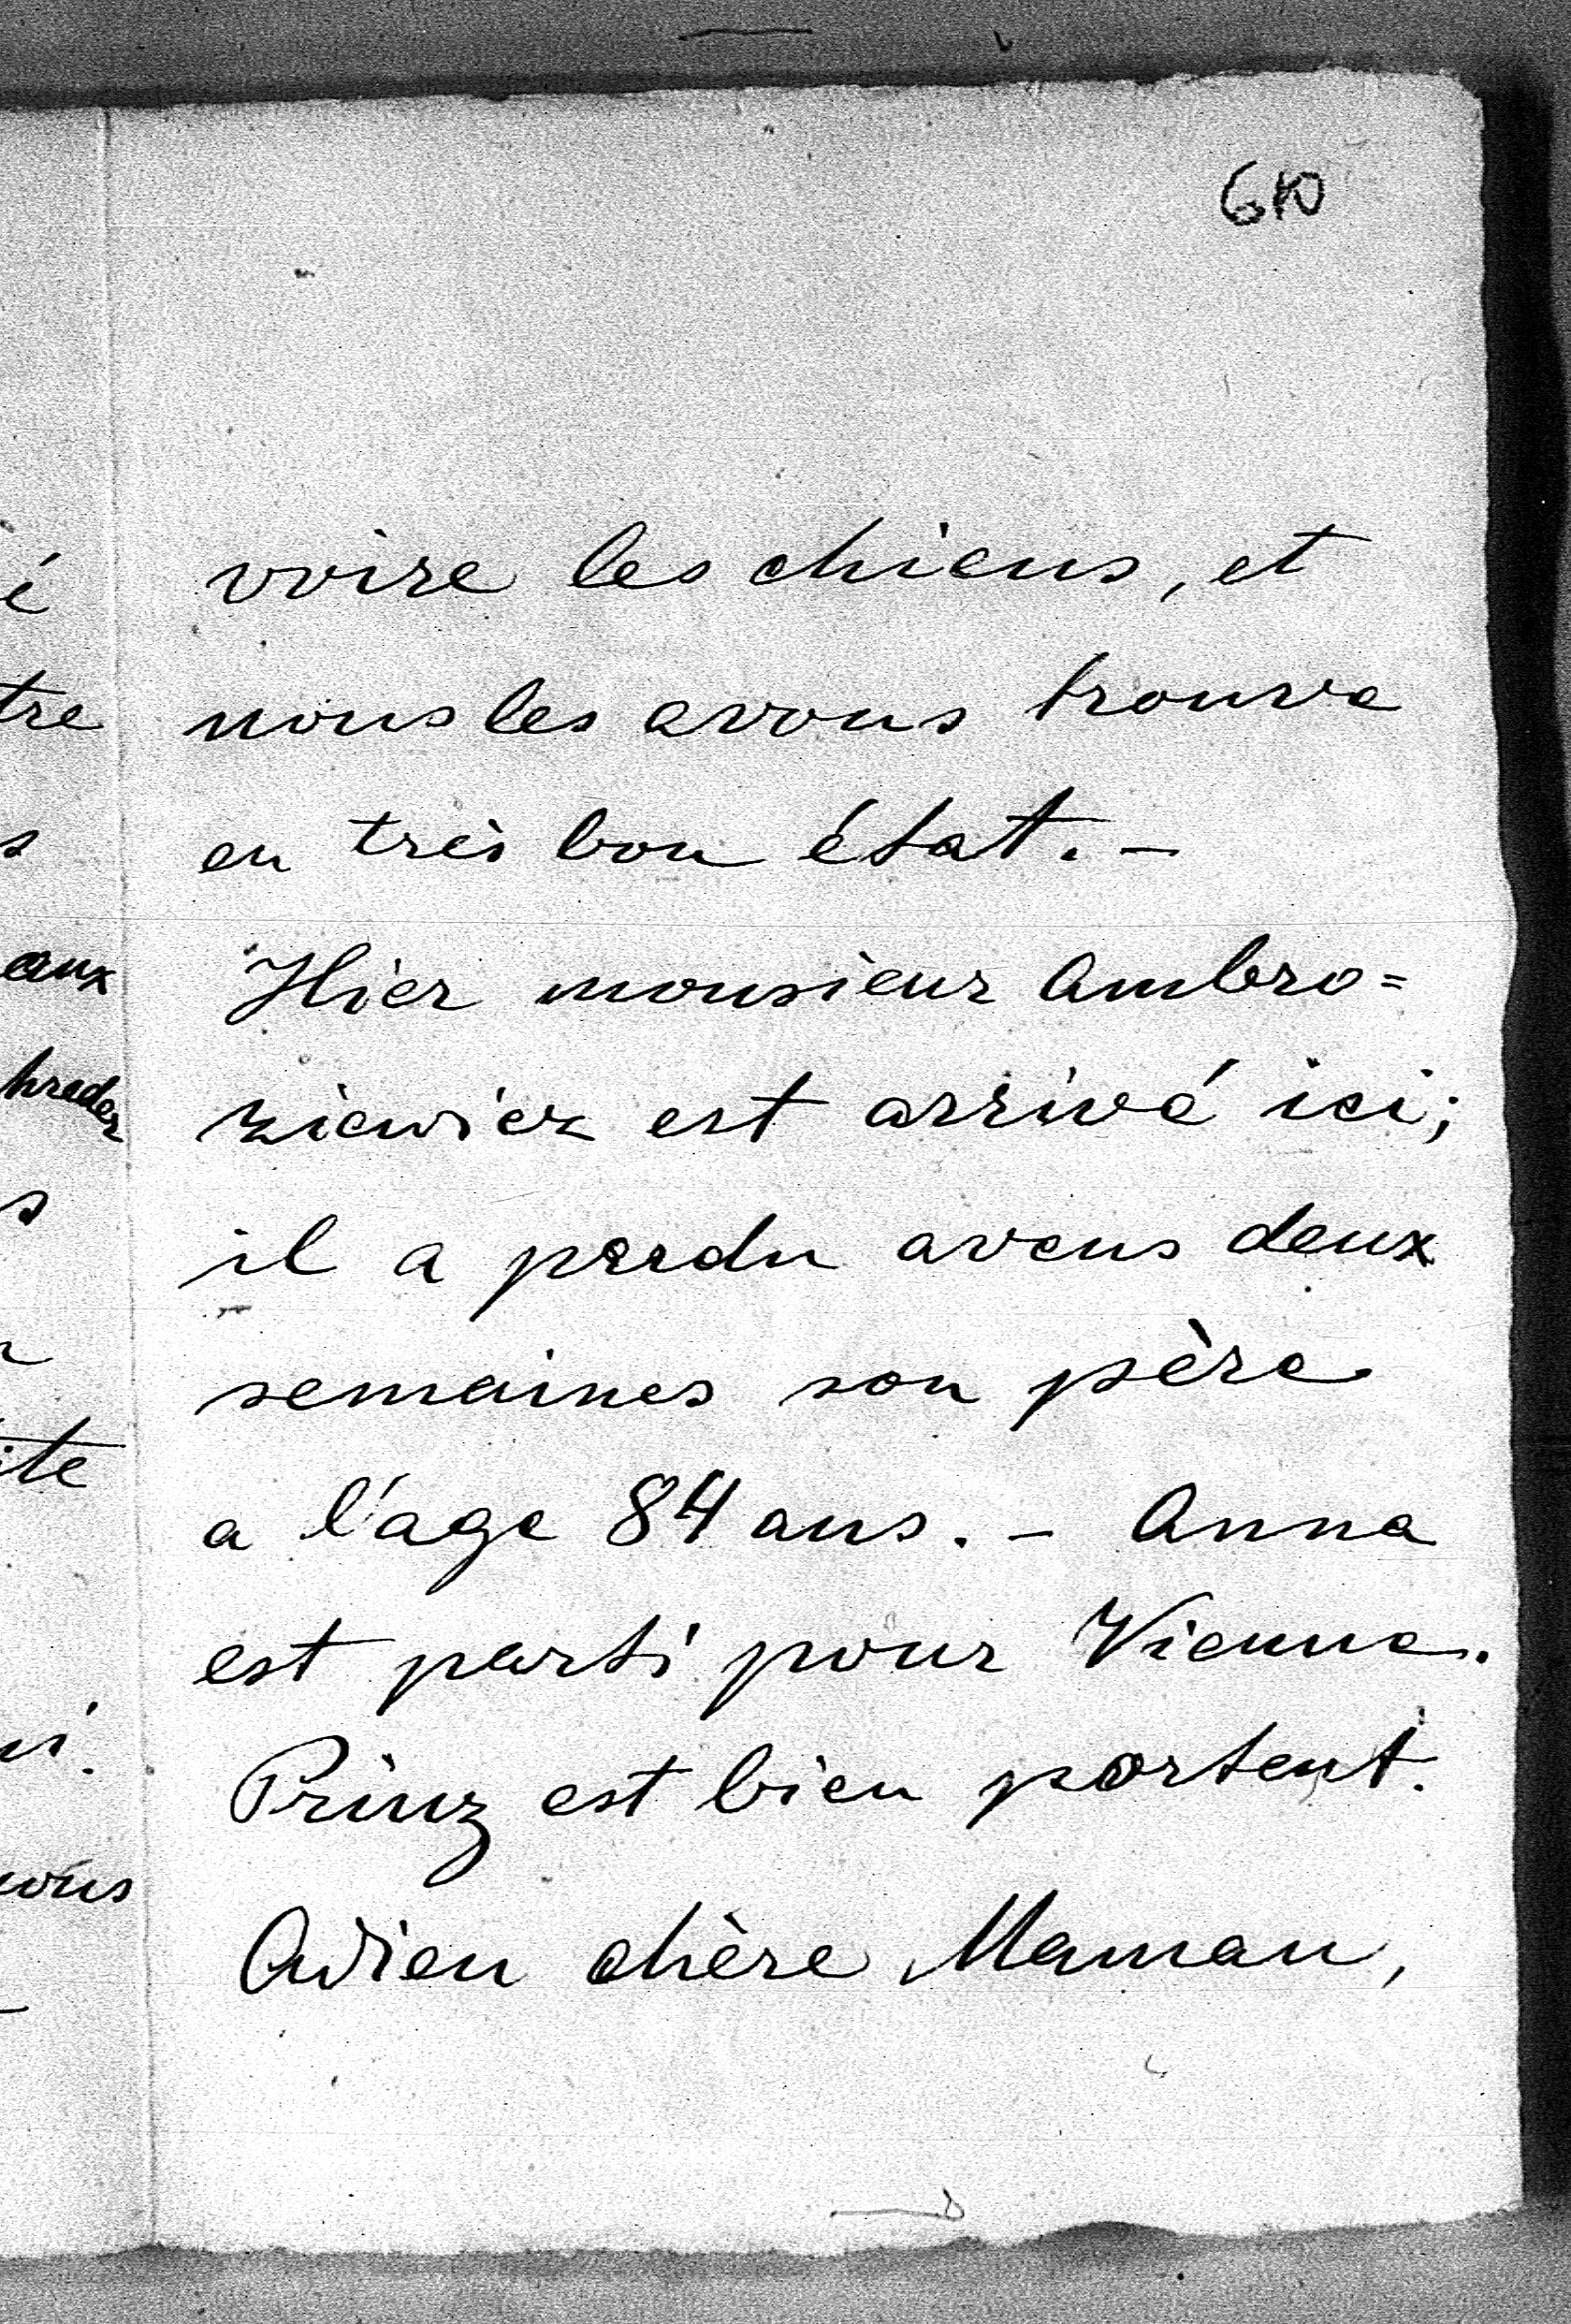 610
voire les chiens, et
nous les avons trouve
en très bon état. –
Hier monsieur Ambro=
ziewicz est arrivé ici;
il a perdu avens deux
semaines son père
a l'age 84 ans. – Anna
est parti pour Vienne.
Prinz est bien portent.
Adieu chère Maman,
é
tre
s
aux
hreder
s
ite
vous